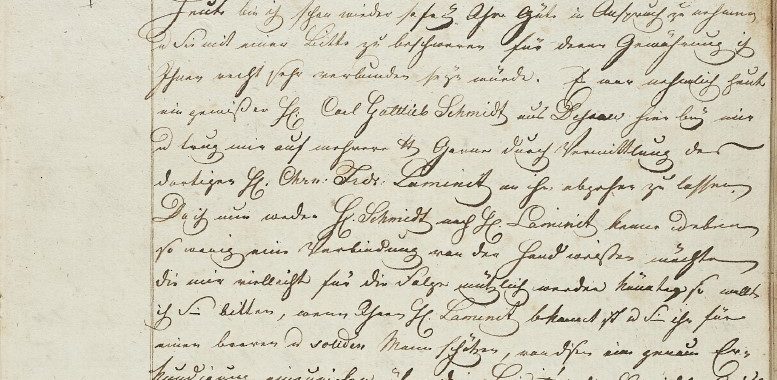 Heute bin ich schon wieder so frey, Ihre Güte in Anspruch zu nehmen
u Sie mit einer Bitte zu beschweren für deren Gewährung ich
Ihnen recht sehr verbunden seyn würde. Es war nehmlich heute
ein gewißer H. Carl Gottlieb Schmidt aus Dessau hier bey mir
u trug mir auf mehrere Garne durch Vermittlung des
dortigen H. Chrn: Frdr: Laminit an ihn abgehen zu lassen,
Da ich nun weder H. Schmidt noch H. Laminit kenne u eben
so wenig eine Verbindung von der Hand weisen möchte
die mir vielleicht für die Folge nützlich werden könnte, so wollt
ich Sie bitten, wenn Ihnen H. Laminit bekannt ist u Sie ihn für
einen braven u soliden Mann schätzen, von dissen eine genaue Er-
kundigung einzuziehen über